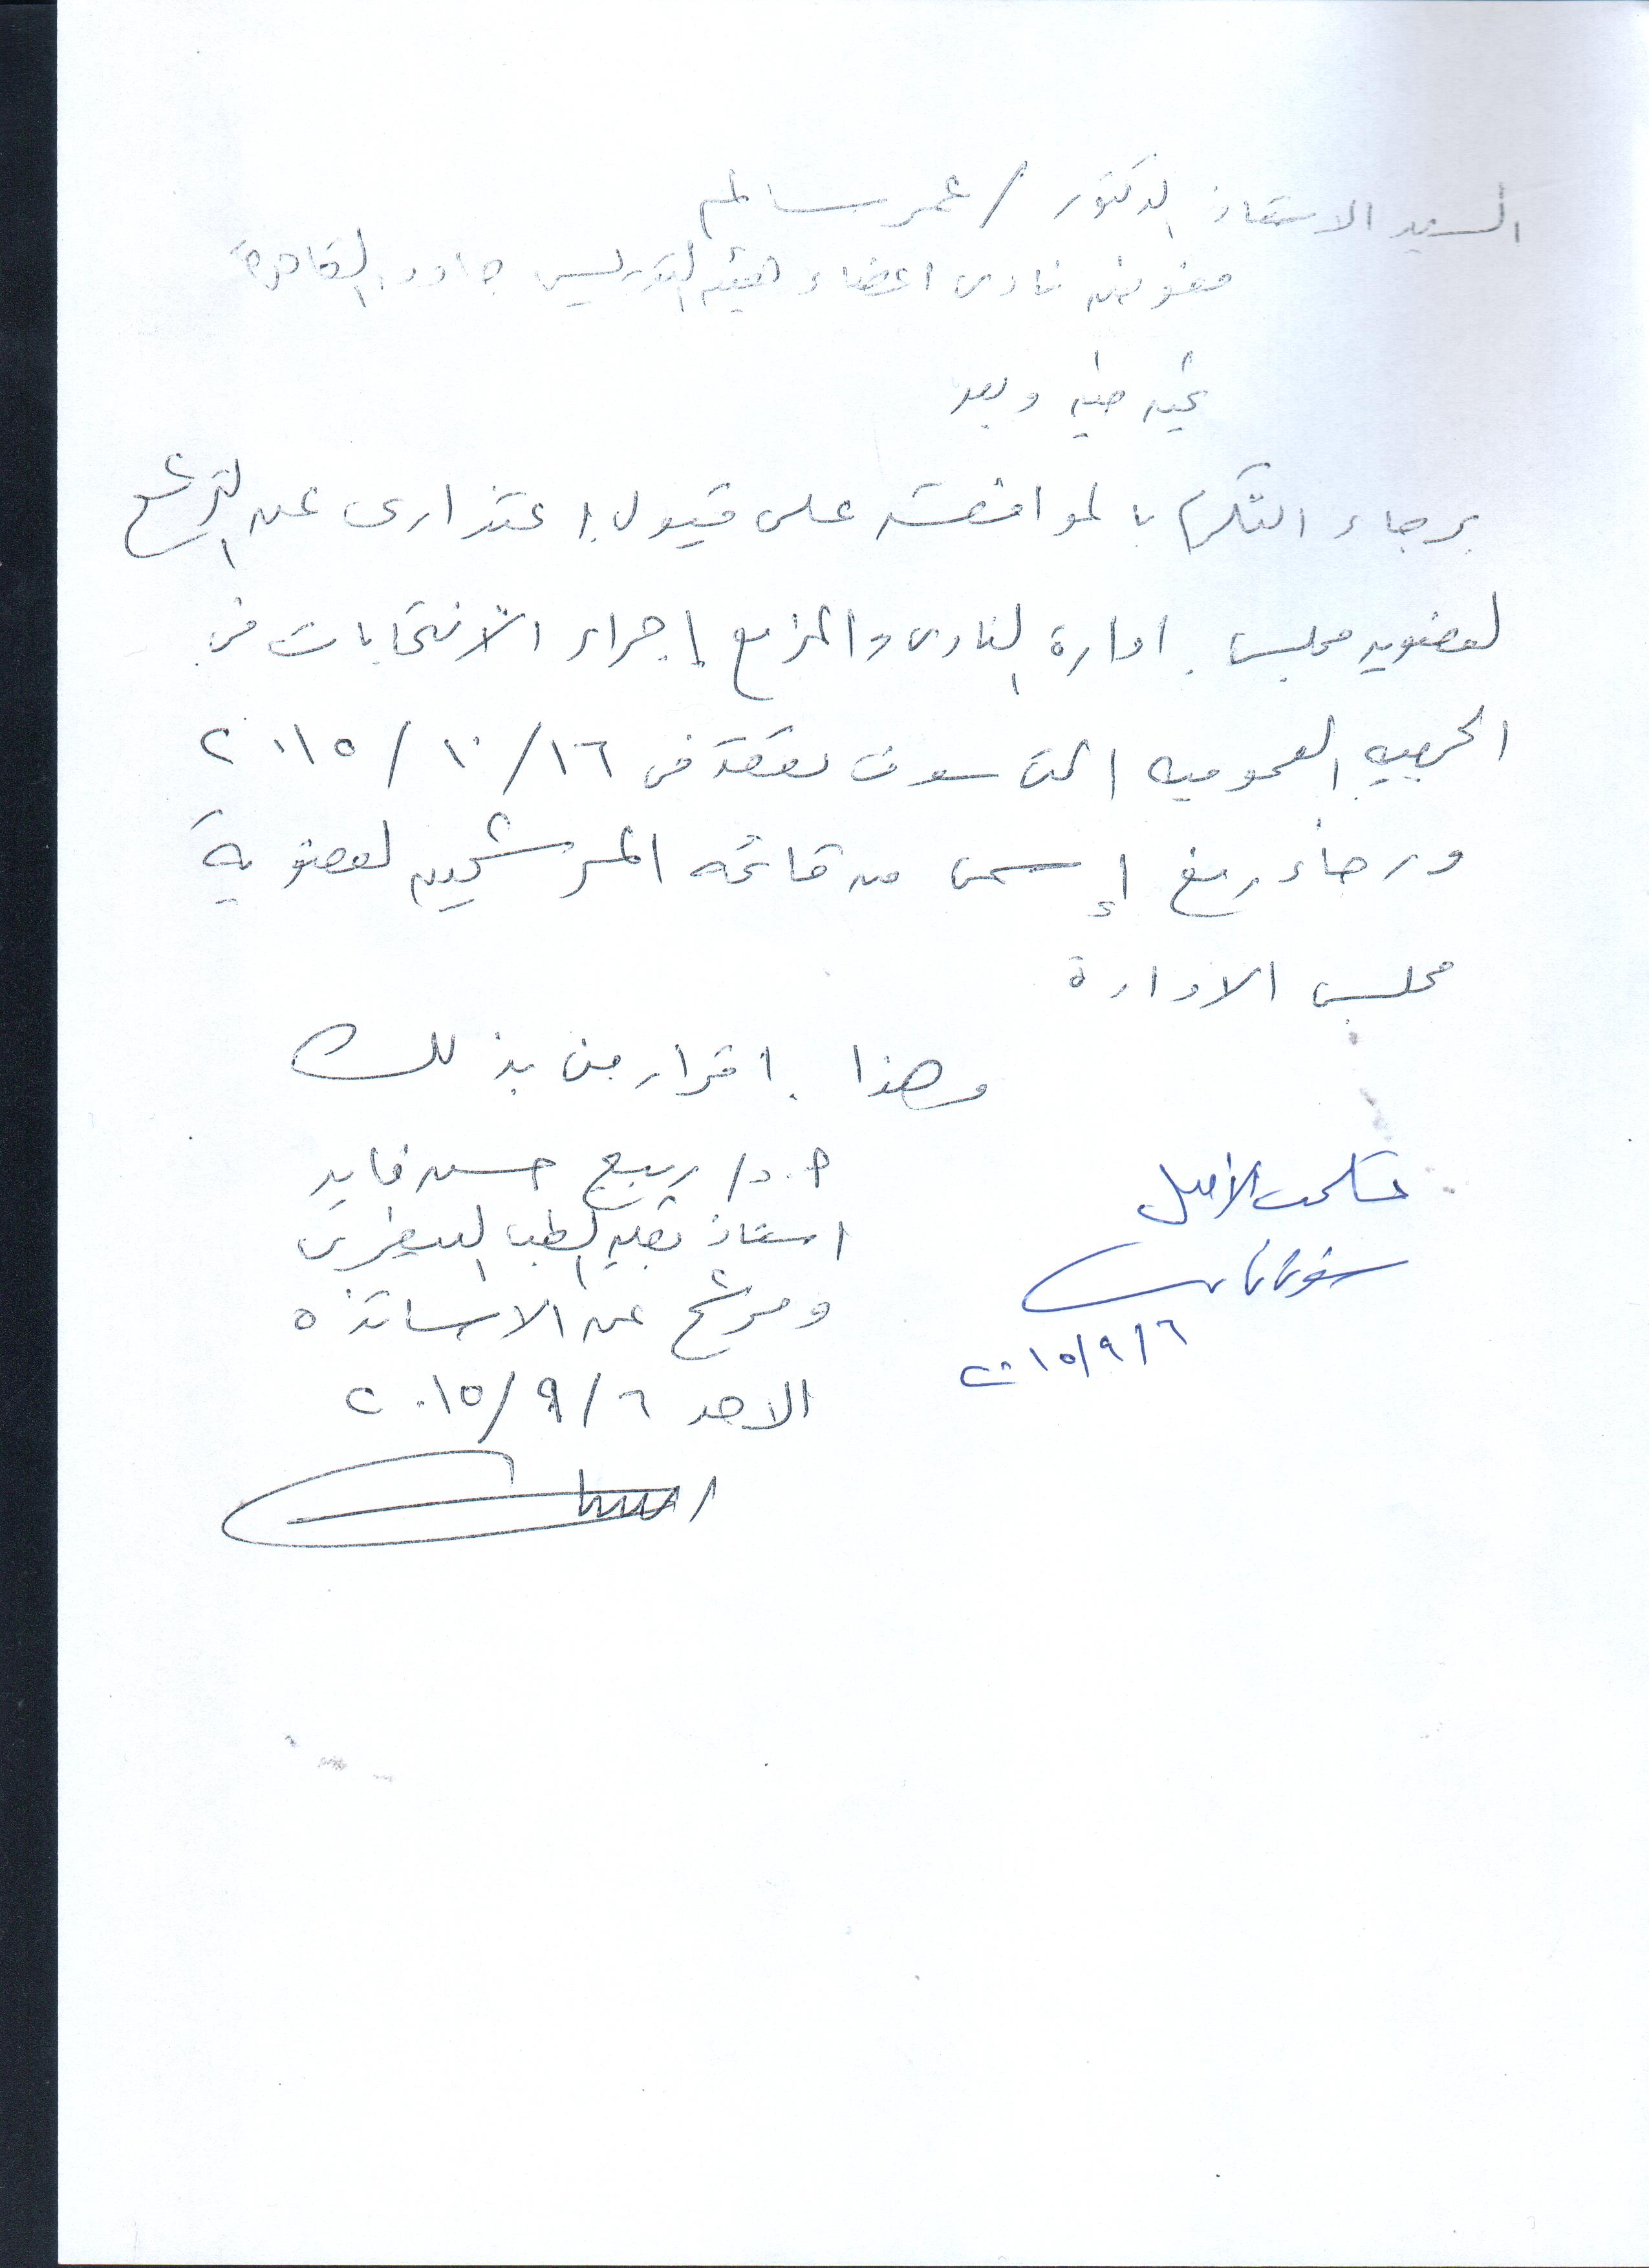 السيد الاستاذ الدكتور / عمر سالم
مفوض نادى اعضاء هيئه التدريس جامعه القاهرة
تحيه طيبه وبعد
برجاء التكرم بالموافقه على قبول إعتذارى عن الترشح
لعضويه مجلس إدارة النادى والمزمع إجراء الانتخابات فى
الجمعيه العموميه التى سوف تعقد فى ١٦ / ١٠ / ٢٠١٥
ورجاء رفع إسمى من قائمه المرشحين لعضوية
مجلس الادارة
وهذا إقرار منى بذلك
أ.د/ ربيع حسن فايد
استاذ بكليه الطب البيطرى
ومرشح عن الاساتذه
الاحد ٦ / ٩ / ٢٠١٥
الأصل
٦ / ٩ / ٢٠١٥